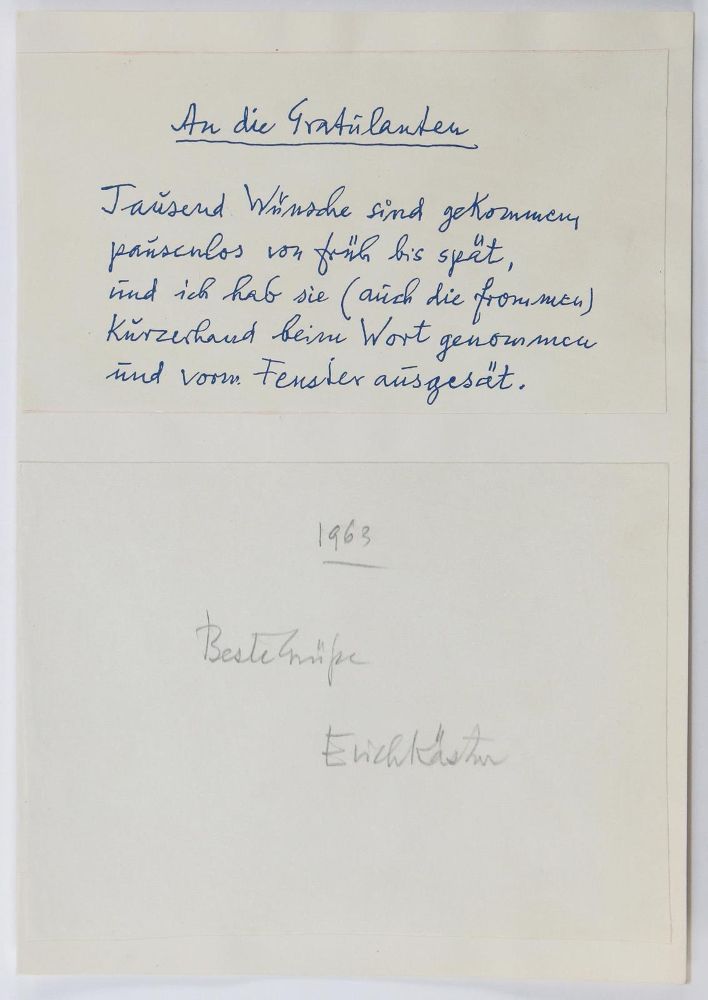 An die Gratulanten
Tausend Wünsche sind gekommen,
pausenlos von früh bis spät,
und ich hab sie (auch die frommen)
kurzerhand beim Wort genommen
und vorm Fenster ausgesät.
1963
Beste Grüße
Erich Kästner